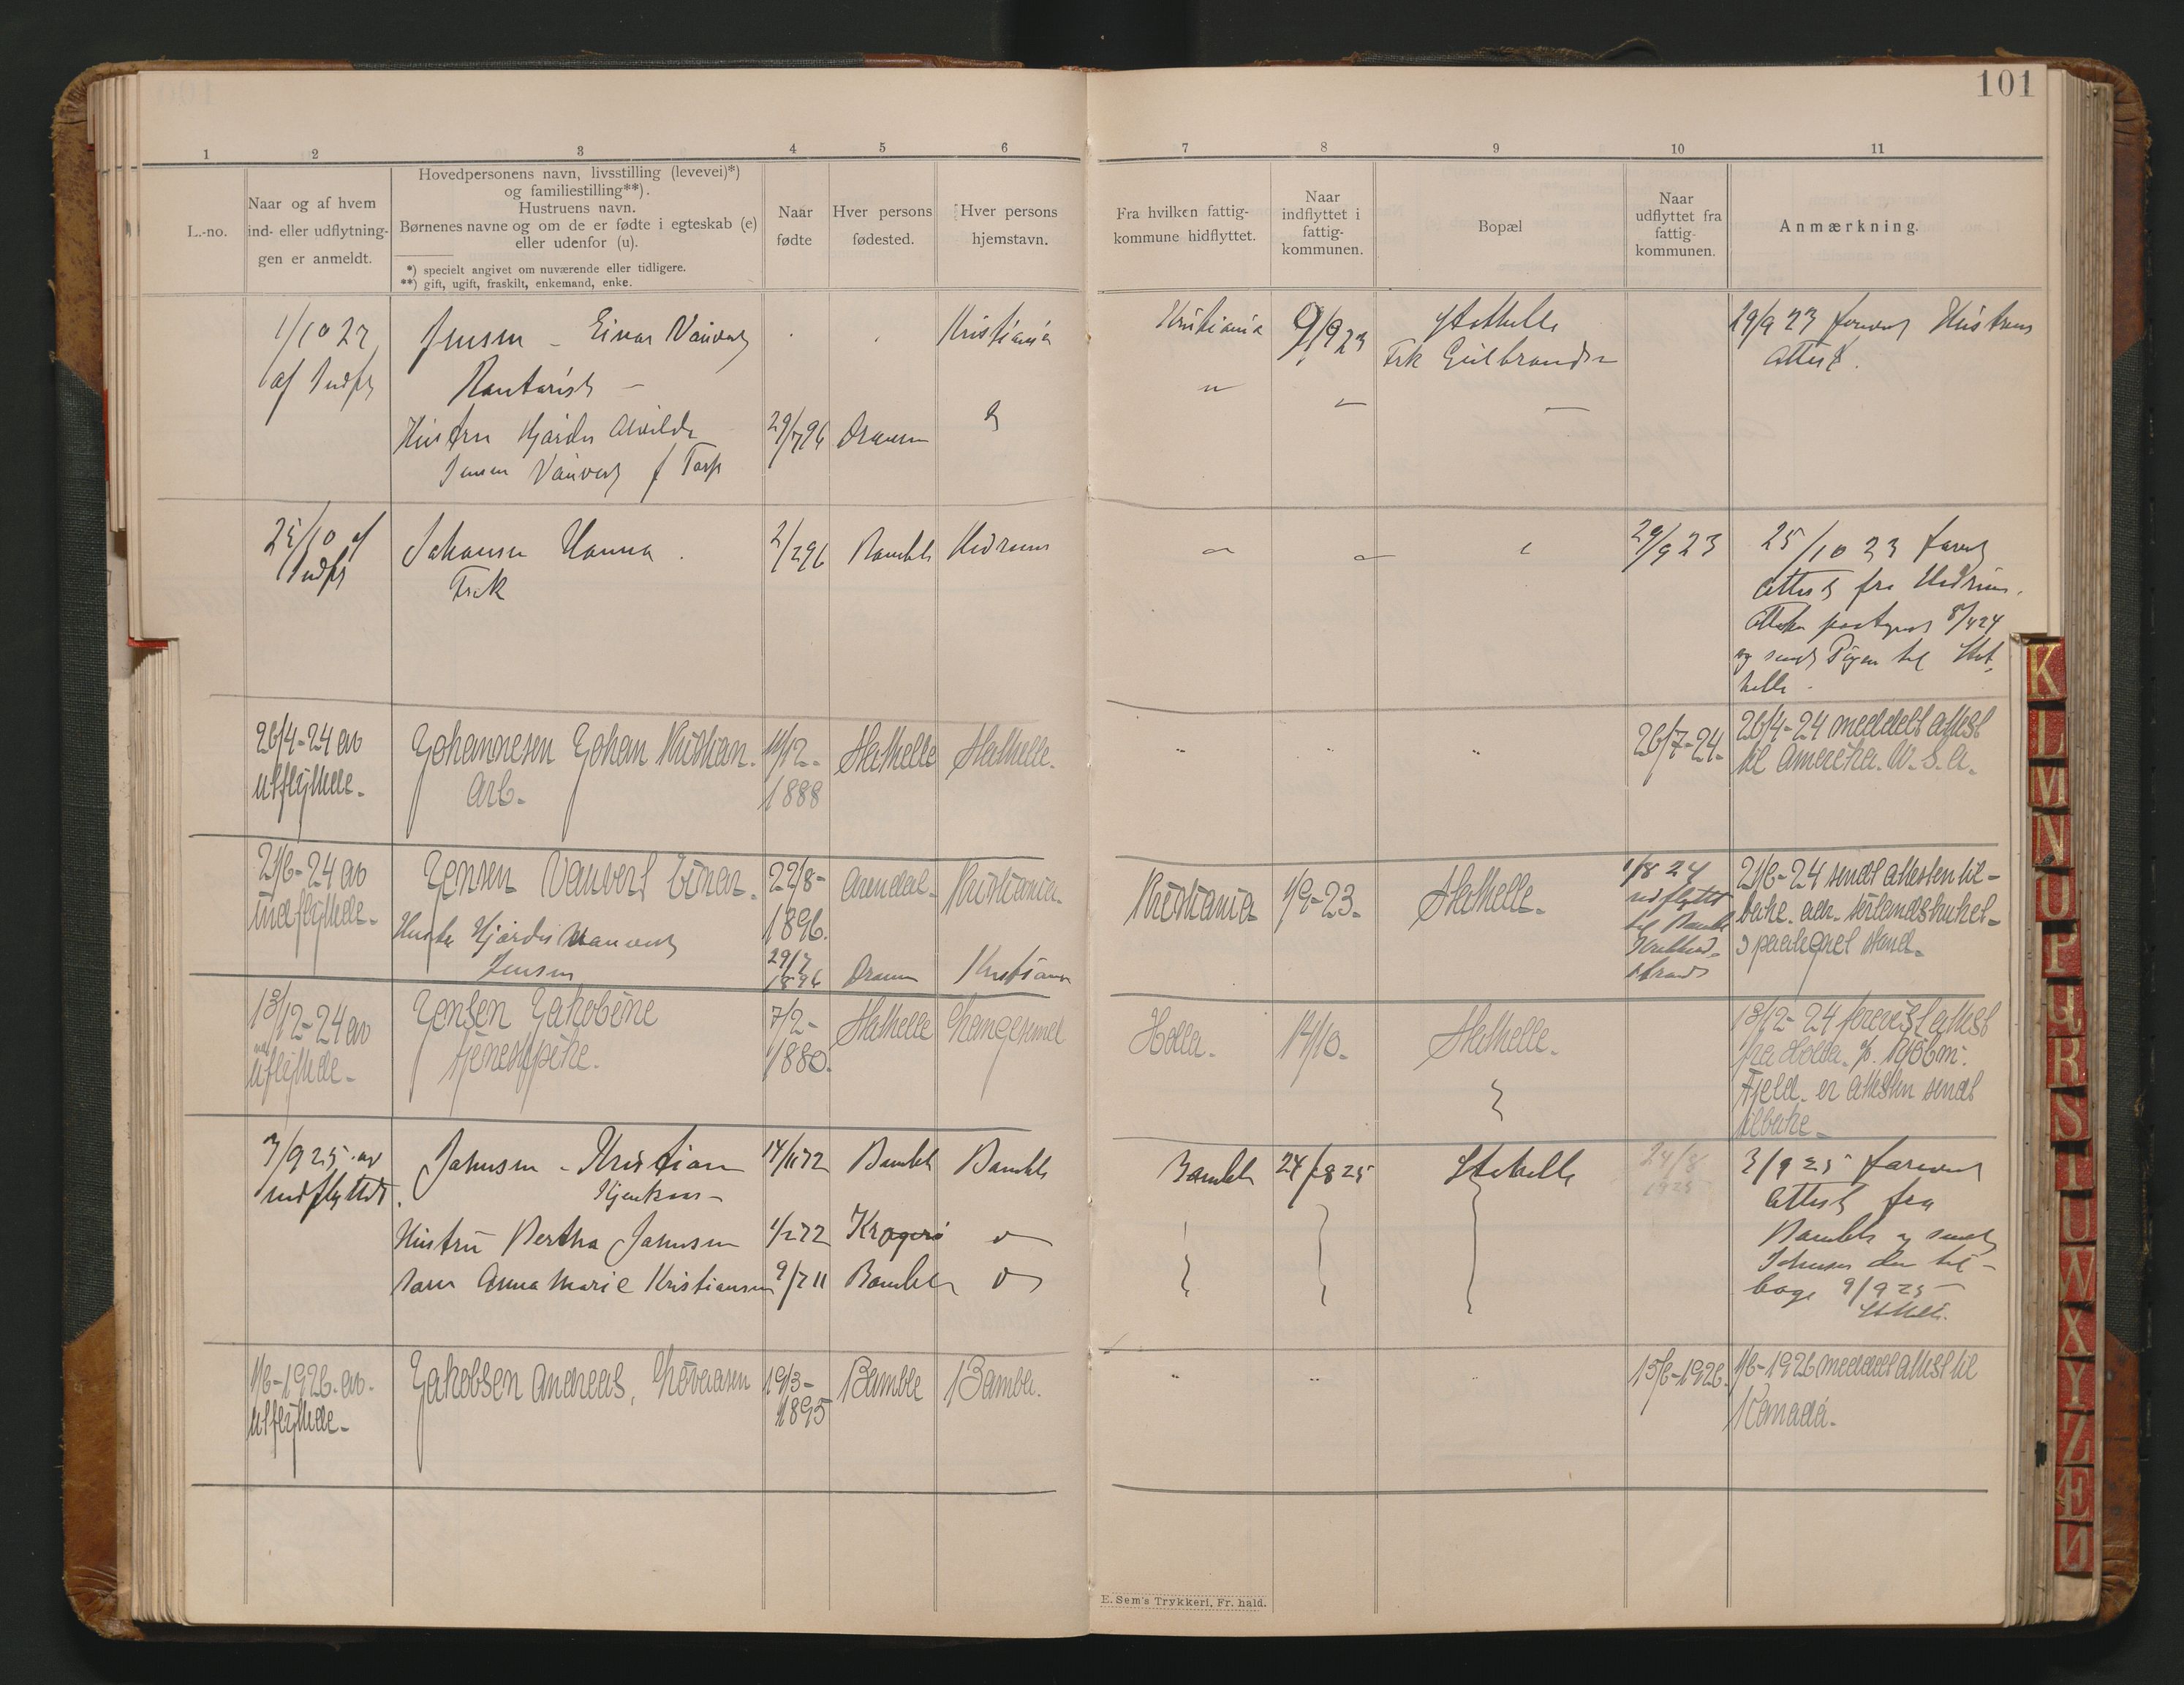 101
1 2 3 4 5 6 7 8 9 10 11
L.-no.
Naar og af hvem
ind- eller udflytnin-
gen er anmeldt.
Hovedpersonens navn, livsstilling (levevei)*)
og familiestilling**).
Hustruens navn.
Børnenes navne og om de er fødte i egteskab (e)
eller udenfor (u).
*) specielt angivet om nuværende eller tidligere.
**) gift, ugift, fraskilt, enkemand, enke.
Naar
fødte
Hver persons
fødested.
Hver persons
hjemstavn.
Fra hvilken fattig-
kommune hidflyttet.
Naar
indflyttet i
fattig-
kommunen.
Bopæl
Naar
udflyttet fra
fattig-
kommunen.
Anmærkning.
af Indfl
Jensen - Einar Vauvert
Kristiania
Kristiania
9/9 23
Stathelle
Frk Gulbrandsen
19/9 23 Hustrus
Attest.
Hustru Hjördis Alvilde
Jensen Vauvert f Torp
29/7 96
25/10 af
Indfl
Johansen Hanna.
Frk
2/2 96
Bamble
Hedrum
29/9 23
25/10 23
Attest fra Hedrum.
8/4 24
og sendt Pigen til Stat-
helle.
26/4-24 av
utflyttede.
Johannesen Johan Kristian.
Arb.
1888
Stathelle
Stathelle.
26/7-24.
26/4-24 meddelt attest
til Amerika. U.S.A.
21/6-24 av
indflyttede.
Jensen Vauvert Einar.
22/8-
1896.
Arendal.
Kristiania.
Kristiania
1/9-23.
Stathelle.
1/8 24
udflyttet
til Bamble
21/6-24 sendt attesten til-
bake.
Hustru Hjördis Vauvert
Jensen
29/7
1896
Kristiania
13/12-24 av
utflyttede.
Jensen Jakobine
tjenestepike.
7/2-
1880.
Stathelle
Langesund
Holla.
14/10.
Stathelle.
13/12-24 forevist attest
fra Holla.
Fjeld. er attesten sendt
tilbake.
3/9 25 av
indflyttet.
Jahnsen - Kristian
14/11 72
Bamble
Bamble
Bamble
24/8 25
Stathelle
24/8
1925
3/9 25 forevist
Attest fra
Bamble og sendt
Johnsen den til-
bage 9/9 25
Stathelle.
Hustru Bertha Jahnsen
1/2 72
Kragerö
Barn Anna Marie Kristiansen
9/7 11
Bamble
1/6-1926. av.
utflyttede.
Jakobsen Andreas,
19/3-
1895
Bamble
Bamble.
15/6-1926.
1/6-1926 meddelt attest til
Kanada.
E. Sem's Trykkeri, Fr. hald.
K
L
M
N
O
P
Q
R
S
T
U
W
X
Y
Z
Æ
Ø